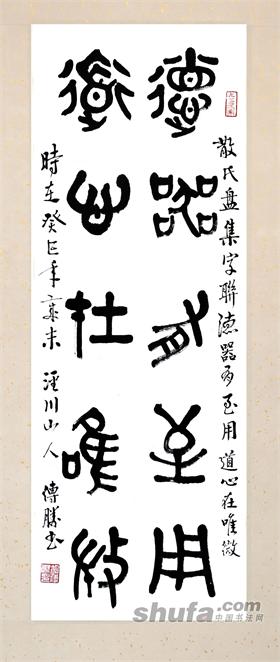 散氏盘集字聯德器有至用道心在唯微
德器有至用
道心在唯微
時在癸巳年歲末 涇川山人 傳勝书
shufa.com
中国书法网